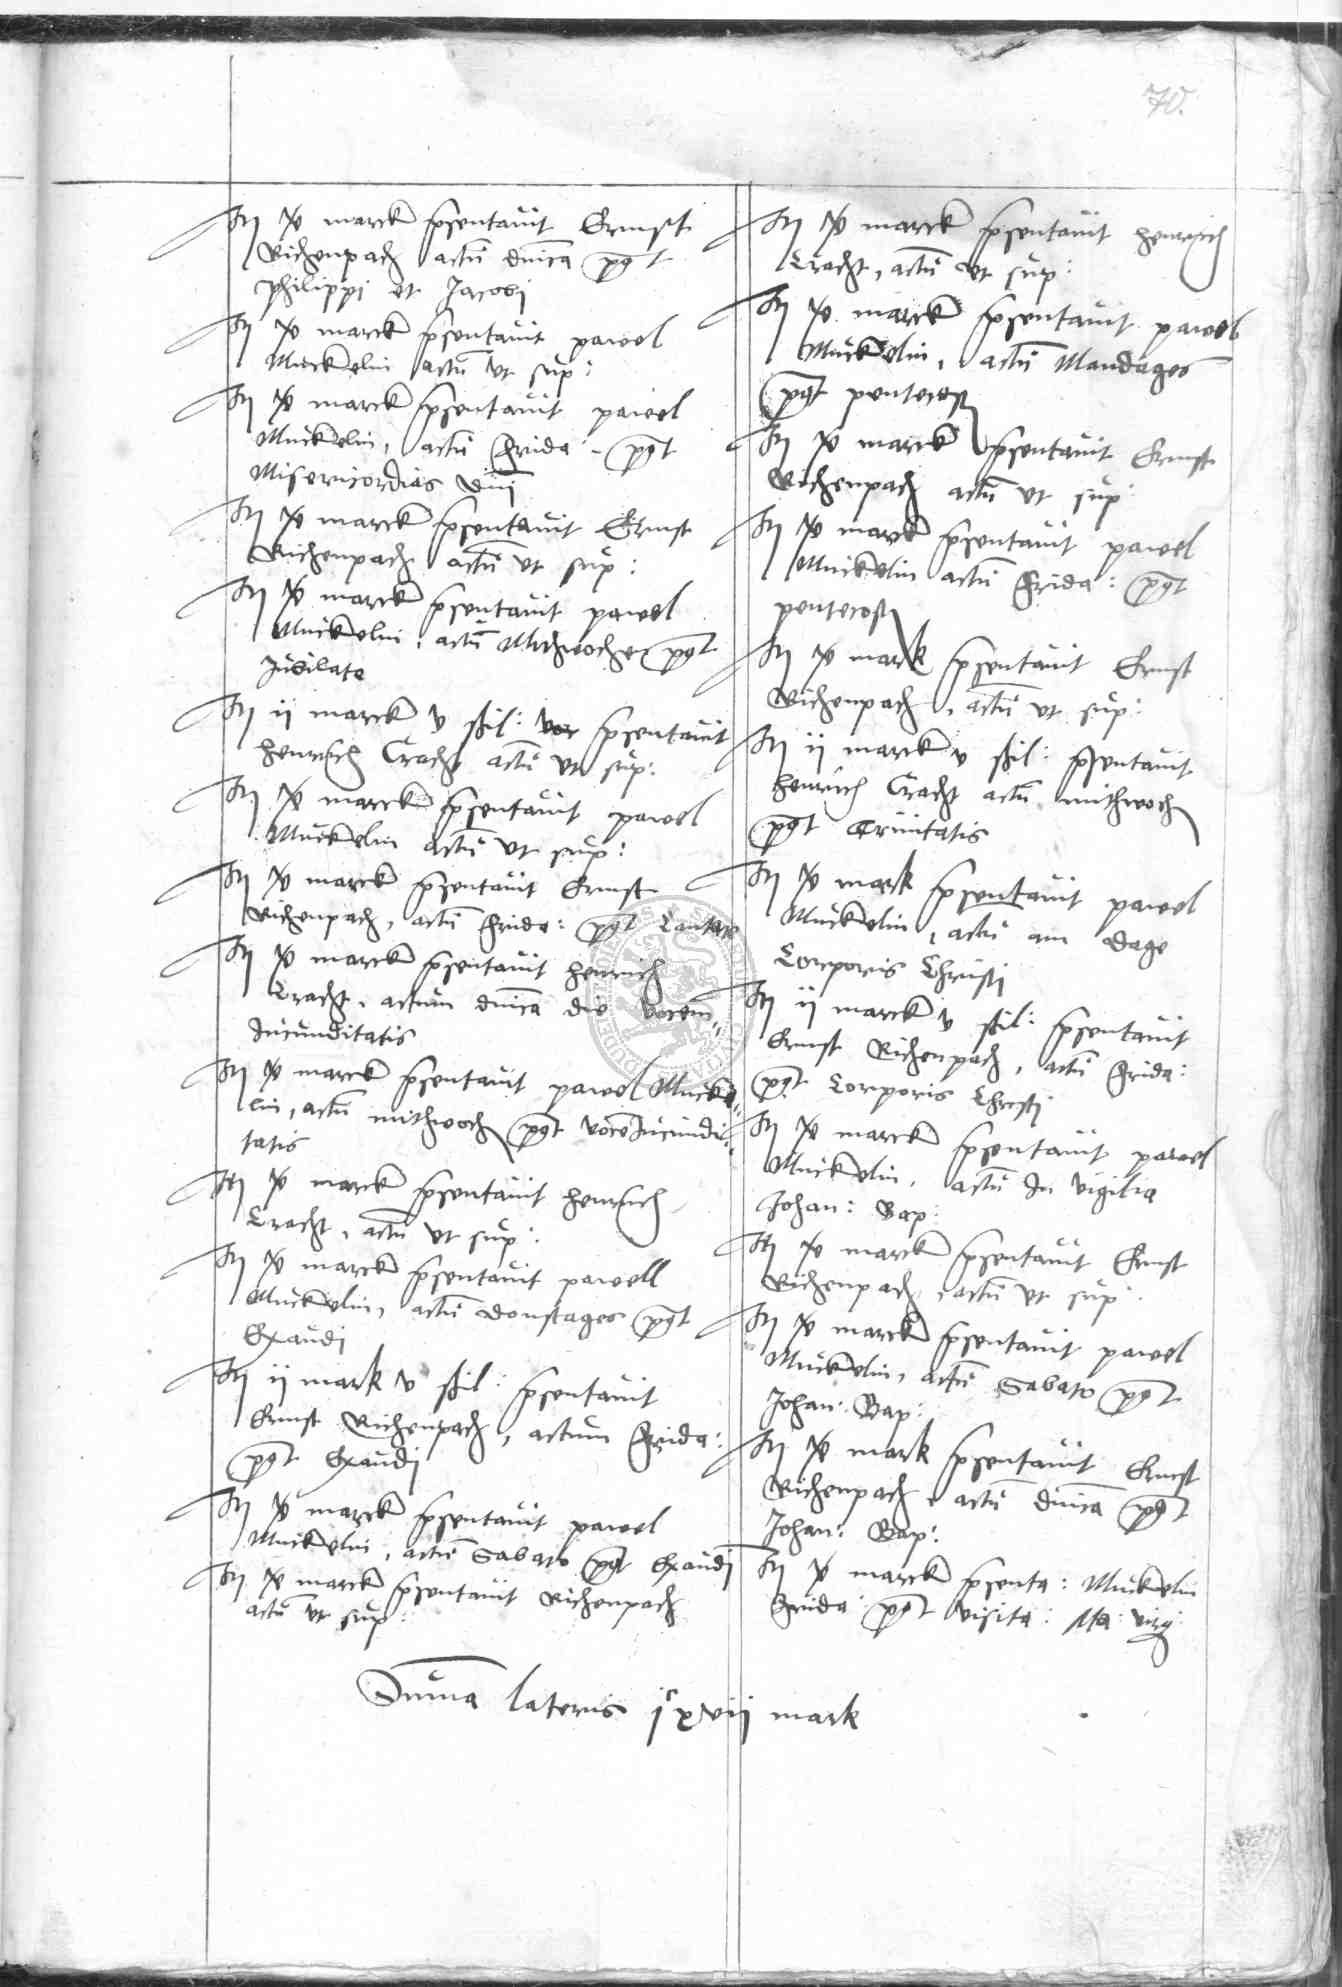 70.
Itm v̶ marck p̄sentavit Ernst
Richenpach actū dn̄ica post
philippi et Jacobi
Itm v̶ marck p̄sentavit pawel
Muckelin actū ut sup:
Itm v̶ marck p̄sentavit pawel
Muckelin, actū Frida: post
Misericordias dn̄i
Itm v̶ marck p̄sentavit Ernst
Richenpach actū ut sup:
Itm v̶ marck p̄sentavit pawel
Muckelin, actū Mithwochen post
Jubilate
Itm ii marck v shil: p̄sentavit
henrich Cracht actū ut sup:
Itm v̶ marck p̄sentavit pawel
Muckelin actū ut sup:
Itm v̶ marck p̄sentavit Ernst
Richenpach, actū Frida: post Cantate
Itm v̶ marck p̄sentavit henrich
Cracht, actum dn̄ica die vocem
Jucunditatis
Itm v̶ marck p̄sentavit pawel Mucke=
lin, actū mithwoch post vocē Jucundi=
tatis
Itm v̶ marck p̄sentavit henrich
Cracht, actū ut sup:
Itm v̶ marck p̄sentavit pawell
Muckelin, actū donstages post
Exaudi
Itm ii mark v shil: p̄sentavit
Ernst Richenpach, actum Frida:
post Exaudi
Itm v̶ marck p̄sentavit pawel
Muckelin, actū Sabato post Exaudi
Itm v̶ marck p̄sentavit Richenpach
actū ut sup:
Itm v̶ marck p̄sentavit henrich
Cracht, actū ut sup:
Itm v̶ marck p̄sentavit pawel
Muckelin, actū Mandages
post pentecost
Itm v̶ marck p̄sentavit Ernst
Richenpach actū ut sup:
Itm v̶ marck p̄sentavit pawel
Muckelin actū Frida: post
pentecost
Itm v̶ mark p̄sentavit Ernst
Richenpach, actū ut sup:
Itm ii marck v shil: p̄sentavit
henrich Cracht actū mithwoch
post Trinitatis
Itm v̶ mark p̄sentavit pawel
Muckelin, actū am dage
Corporis Christi
Itm ii marck v shil: p̄sentavit
Ernst Richenpach, actū Frida:
post Corporis Christi
Itm v̶ marck p̄sentavit pawel
Muckelin, actū In vigilia
Johan: Bap:
Itm v̶ marck p̄sentavit Ernst
Richenpach, actū ut sup:
Itm v̶ marck p̄sentavit pawel
Muckelin, actū Sabato post
Johan: Bap:
Itm v̶ mark p̄sentavit Ernst
Richenpach, actū dn̄ica post
Johan: Bap:
Itm v̶ marck p̄senta: Muckelin
Frida: post visita: Ma: virg:
Suma lateris iᶜxvii mark